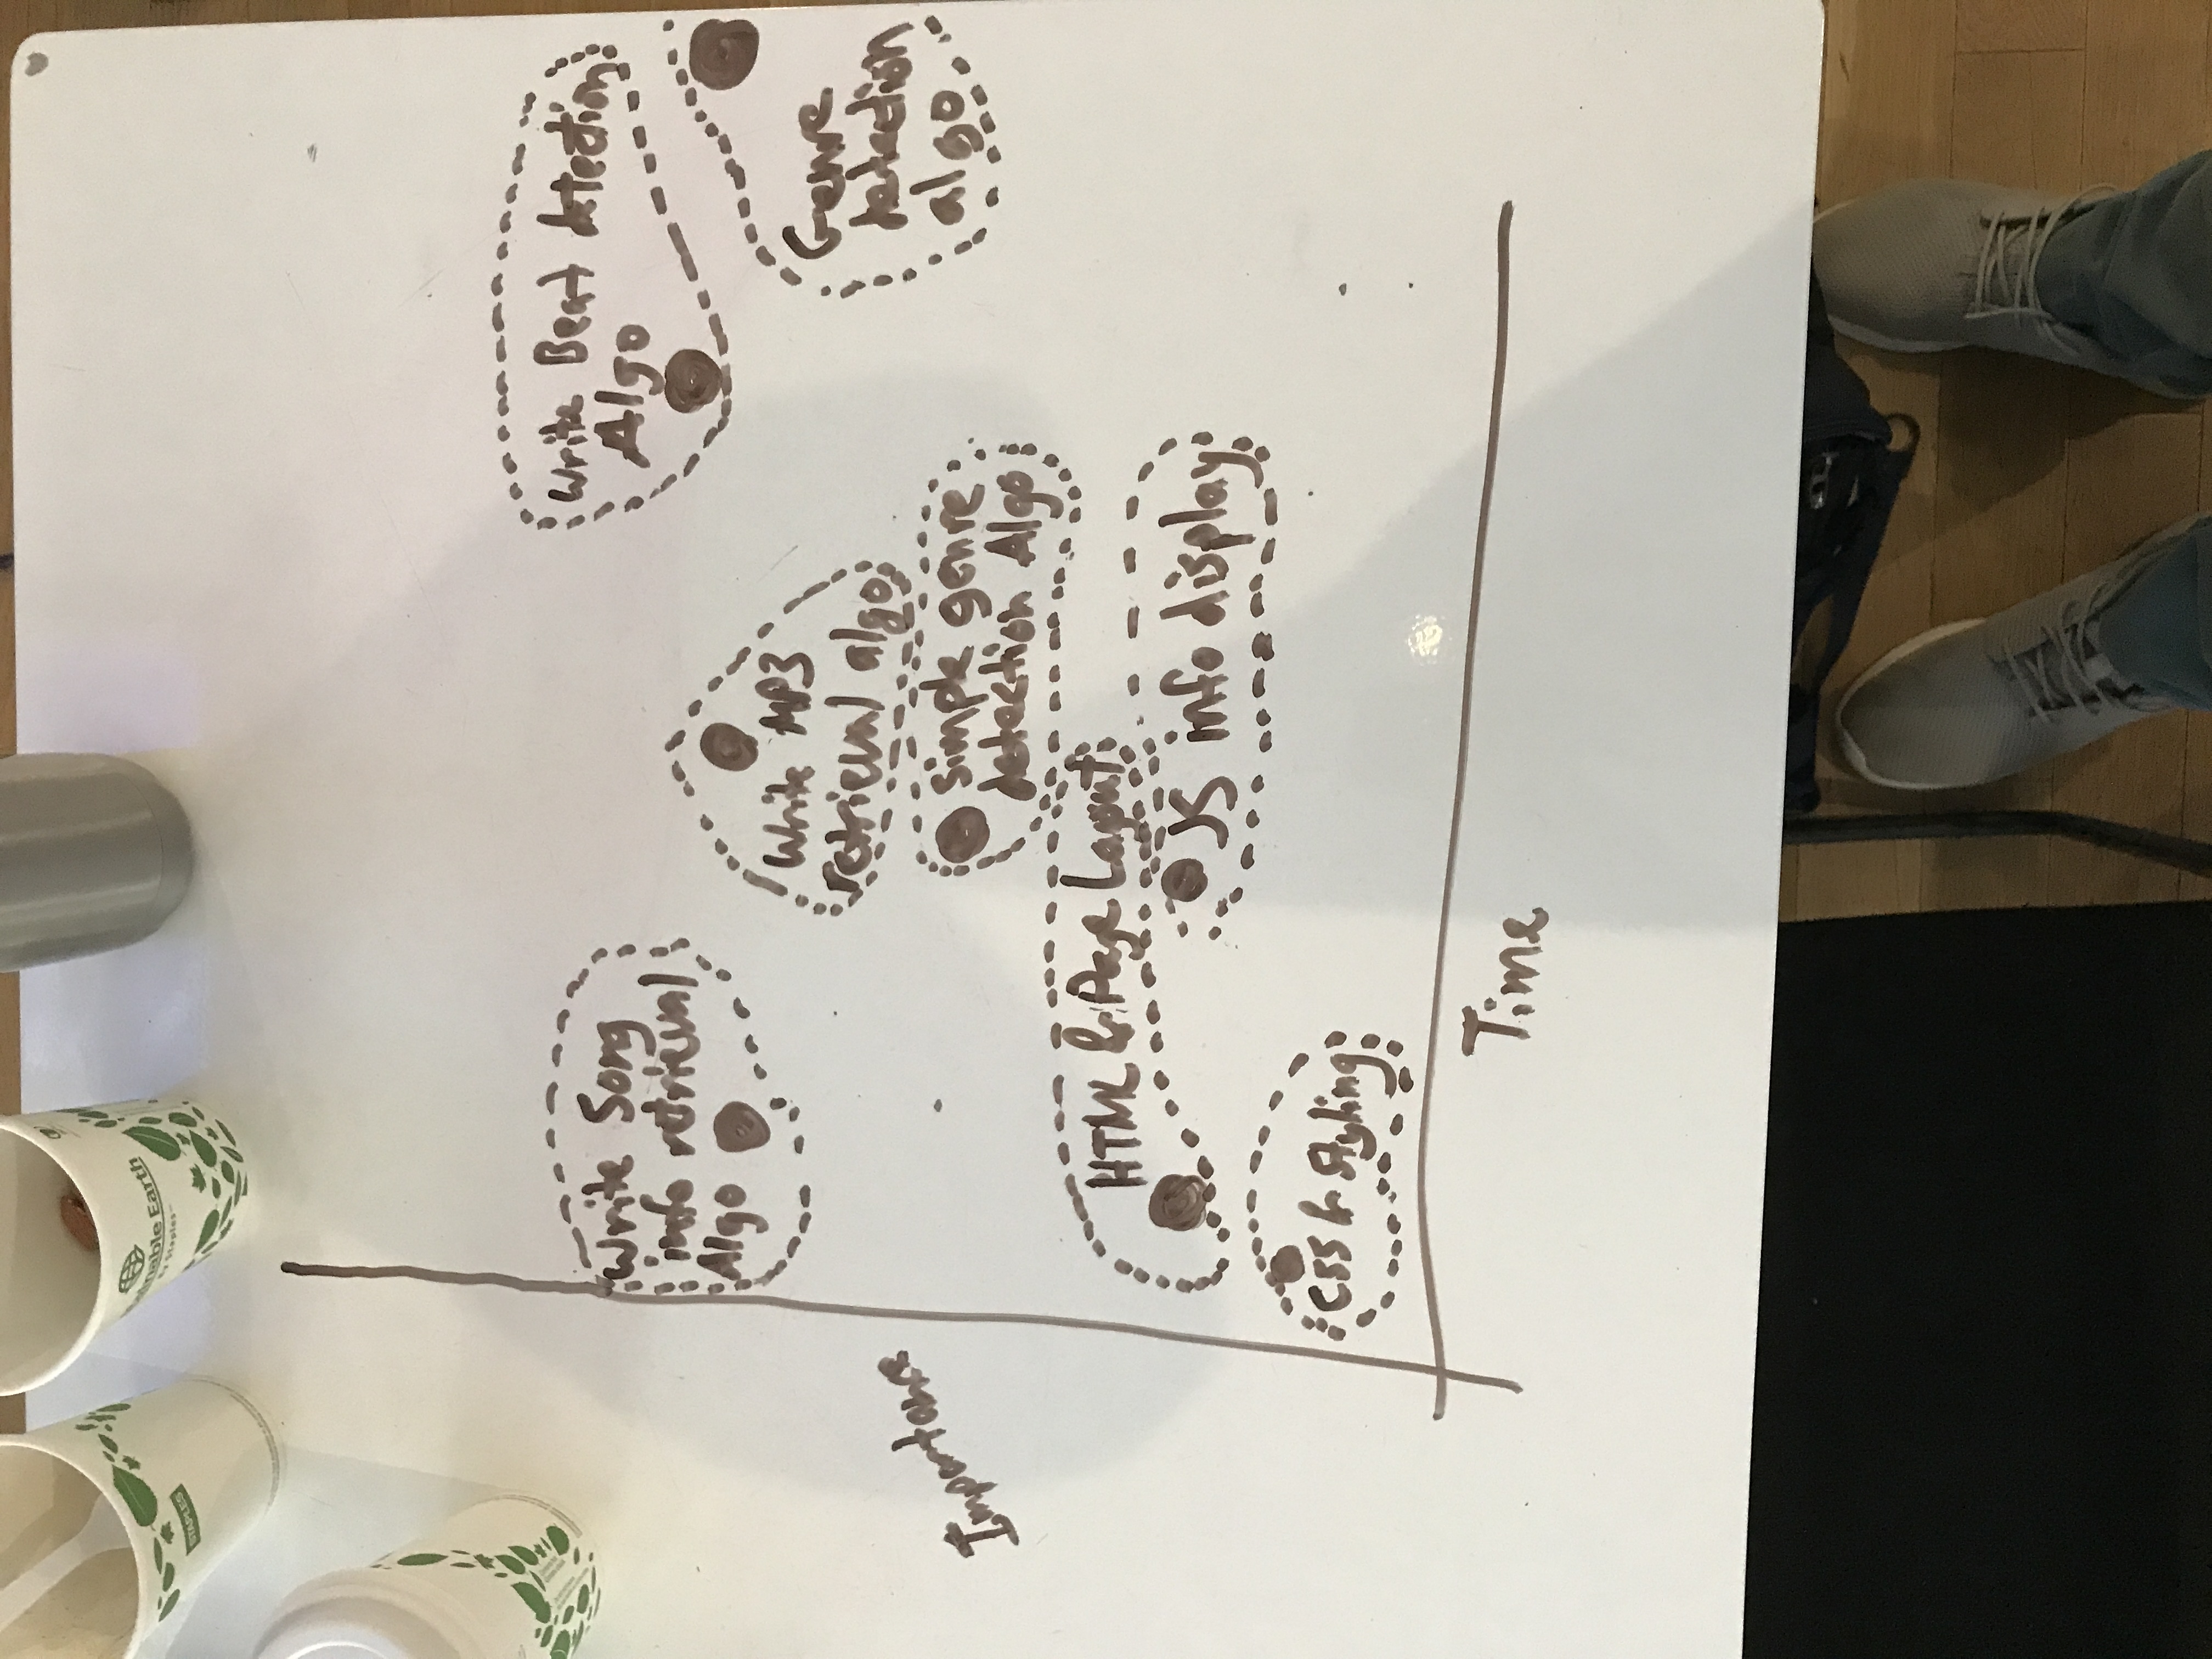 STAPLES
nable Earth
by Staples
Write Song
info retrieval
Algo
Write Beat detection
Algo
Write MP3
retrieval algo
Genre
detection
algo
Simple genre
detection Algo
Importance
HTML & Page Layout
JS info display
CSS & Styling
Time